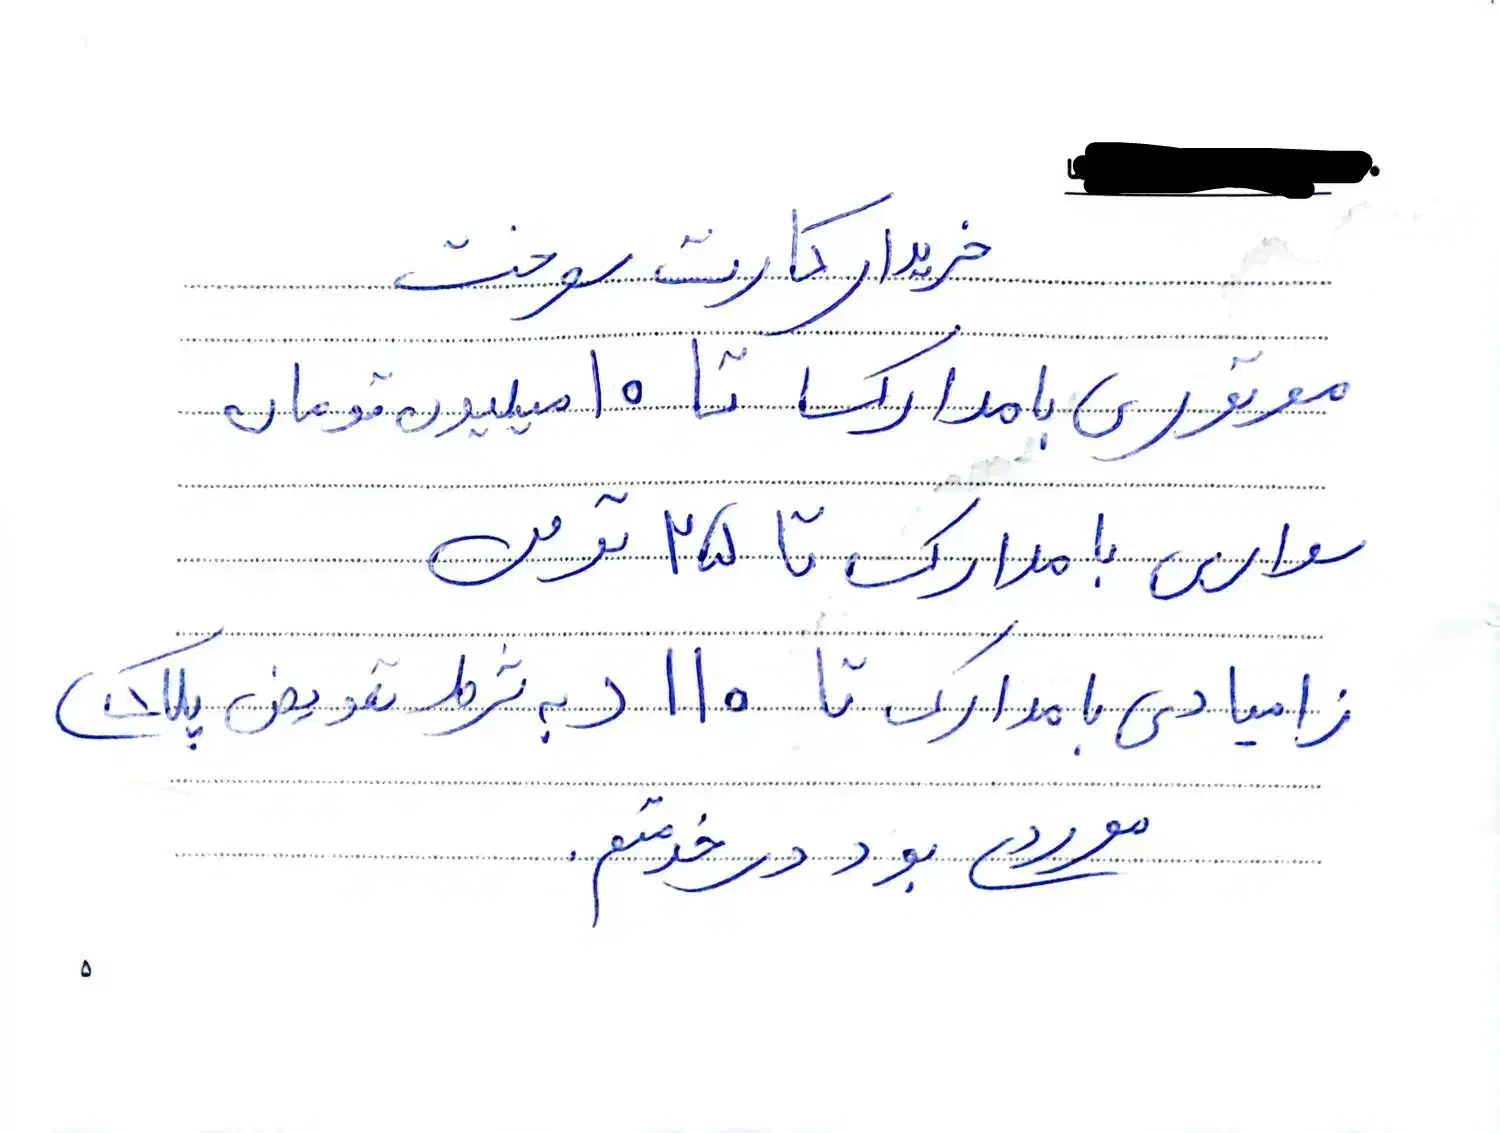 خریدار کارت سوخت
موتوری با مدارک تا ۱۰ میلیون تومان
سواری با مدارک تا ۲۵ تومن
زامیادی با مدارک تا ۱۱۰ (به شرط تعویض پلاک)
موردی بود در خدمتم.
۵